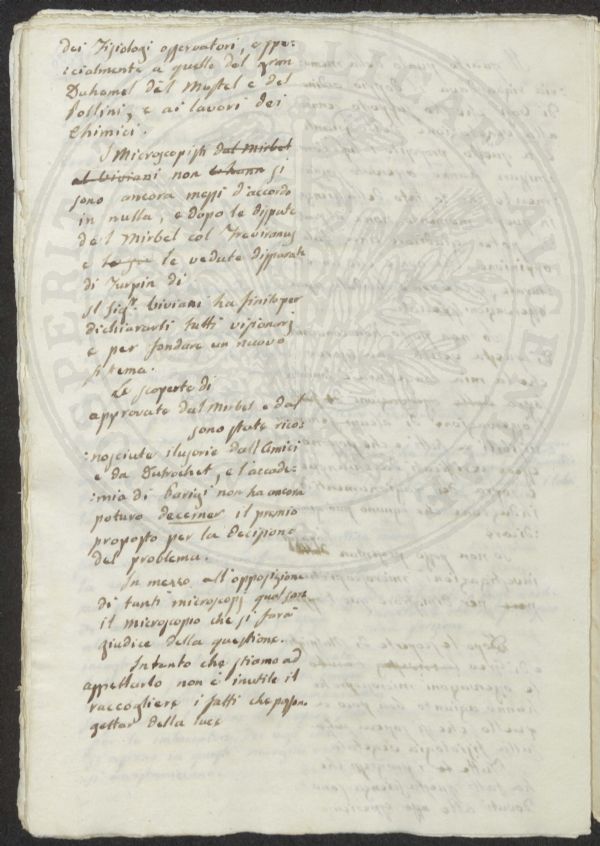 dei Fisiologi osservatori, e spe:
cialmente a quelle del gran
Duhamel del Mustel e del
Pollini, e ai lavori dei
Chimici.
I Microscopisti dal Mirbel
al Viviani non si
sono ancora messi d'accordo
in nulla, e dopo le dispute
del Mirbel col Treviranus
e le vedute disparate
di Turpin di
il Sigr. Viviani ha finito per
dichiararli tutti visionarj
e per fondare un nuovo
sistema.
Le scoperte di
approvate dal Mirbel e dal
sono state rico:
:nosciute ilusorie dall'Amici
e da Dutrochet, e l'accade:
:mia di Parigi non ha ancora
potuto decerner il premio
proposto per la decisione
del problema.
In mezzo all'opposizione
di tanti microscopj qual sarà
il microscopio che si farà
giudice della questione.
Intanto che stiamo ad
aspettarlo non è inutile il
raccogliere i fatti che posson
gettar della luce